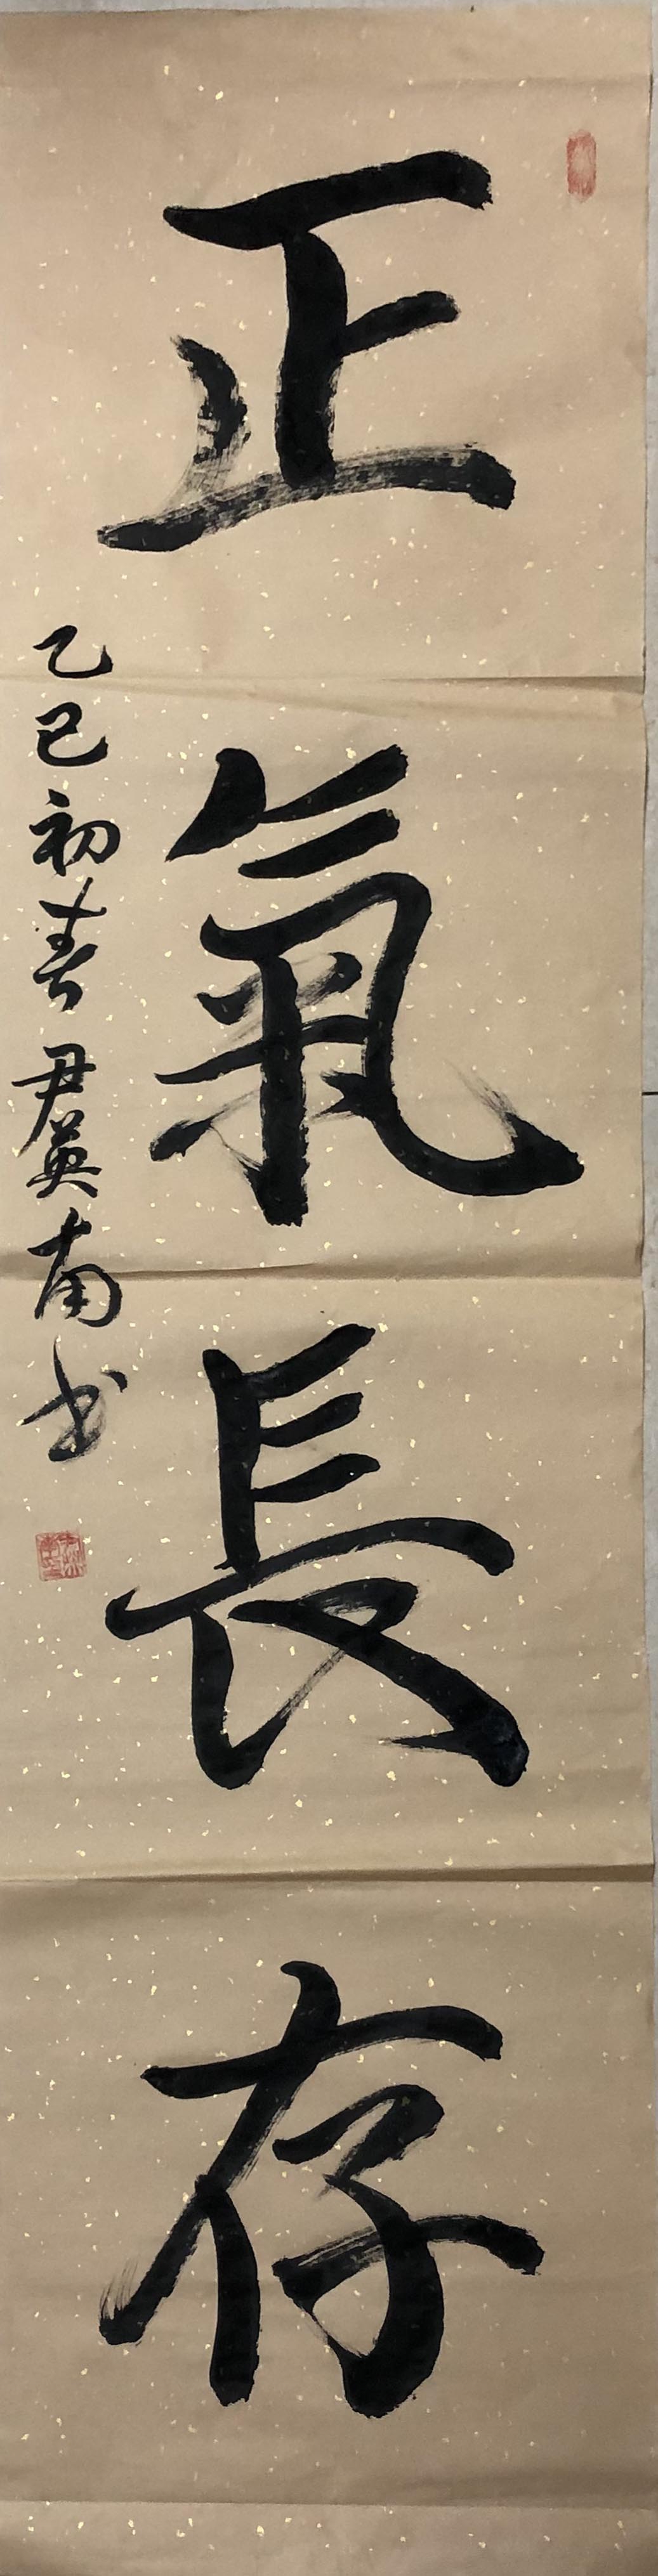 正氣長存
乙巳初春尹英南书